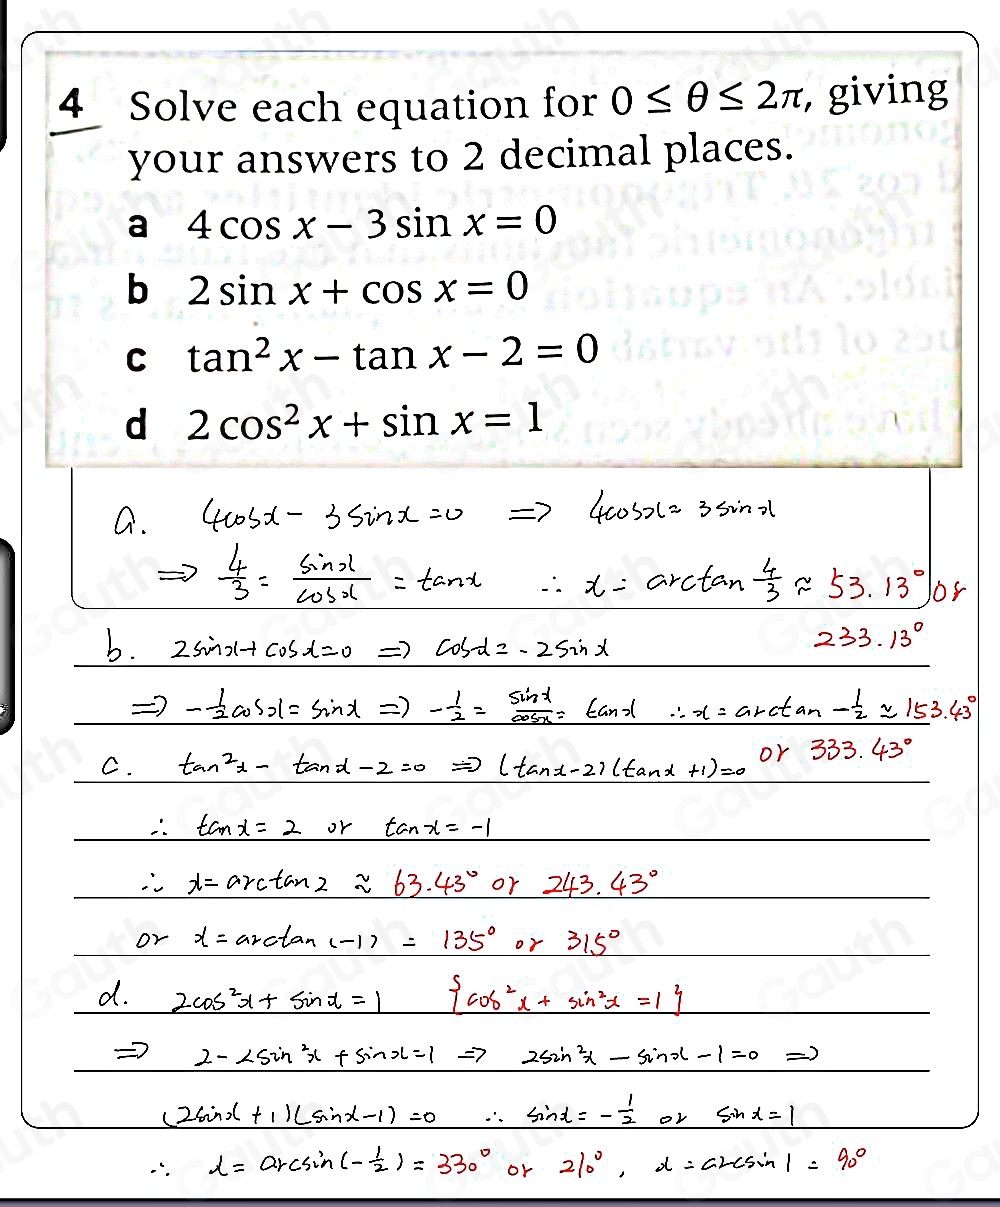 4 Solve each equation for 0 ≤ θ ≤ 2π, giving
your answers to 2 decimal places.
a 4 cos x − 3 sin x = 0
b 2 sin x + cos x = 0
c tan² x − tan x − 2 = 0
d 2 cos² x + sin x = 1
a. 4cosx − 3sinx = 0 ⇒ 4cosx = 3sinx
⇒ 4/3 = sinx/cosx = tanx ∴ x = arctan 4/3 ≈ 53.13° or
233.13°
b. 2sinx + cosx = 0 ⇒ cosx = -2sinx
⇒ -1/2 cosx = sinx ⇒ -1/2 = sinx/cosx = tanx ∴ x = arctan -1/2 ≈ 153.43°
or 333.43°
c. tan²x − tanx − 2 = 0 ⇒ (tanx − 2)(tanx + 1) = 0
∴ tanx = 2 or tanx = -1
∴ x = arctan2 ≈ 63.43° or 243.43°
or x = arctan(-1) = 135° or 315°
d. 2cos²x + sinx = 1 {cos²x + sin²x = 1}
⇒ 2 − 2sin²x + sinx = 1 ⇒ 2sin²x − sinx − 1 = 0 ⇒
(2sinx + 1)(sinx − 1) = 0 ∴ sinx = -1/2 or sinx = 1
∴ x = arcsin(-1/2) = 330° or 210°, x = arcsin1 = 90°